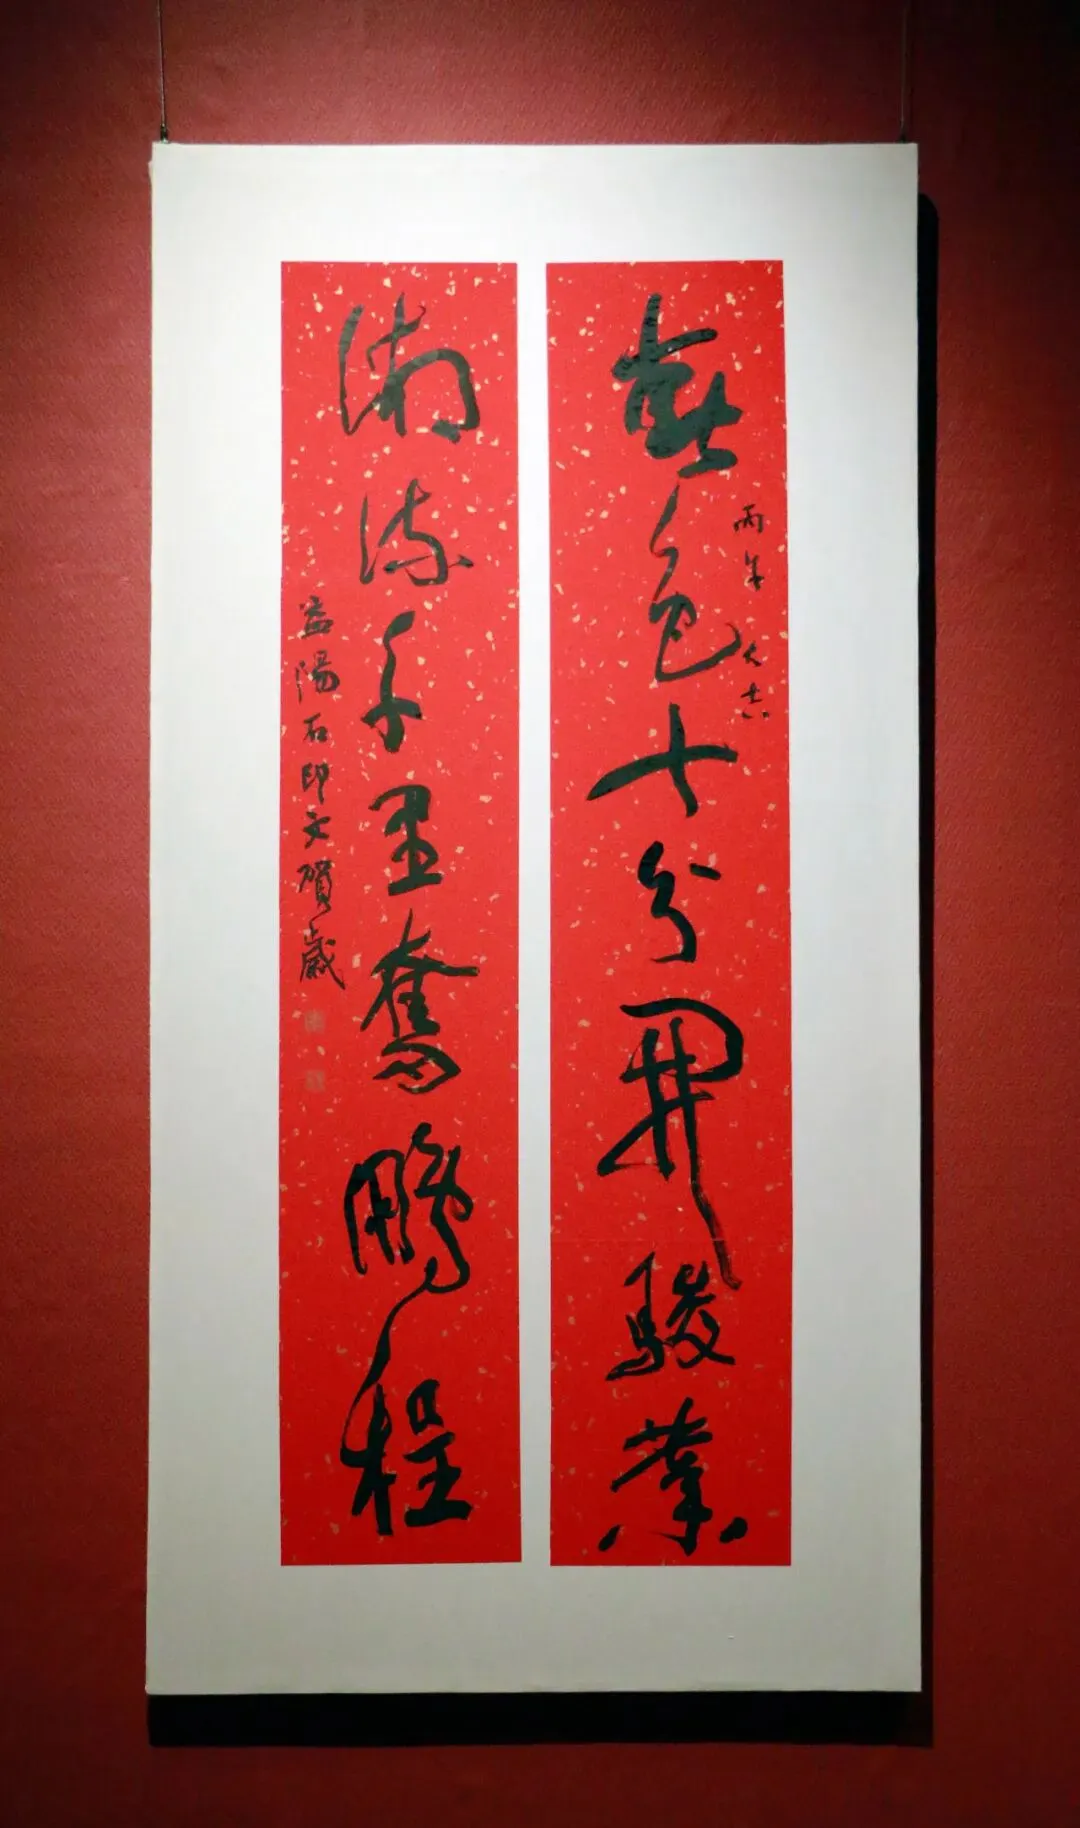 春色十分开骏业
丙午大吉
湘流千里奋鹏程
益阳石印文贺岁